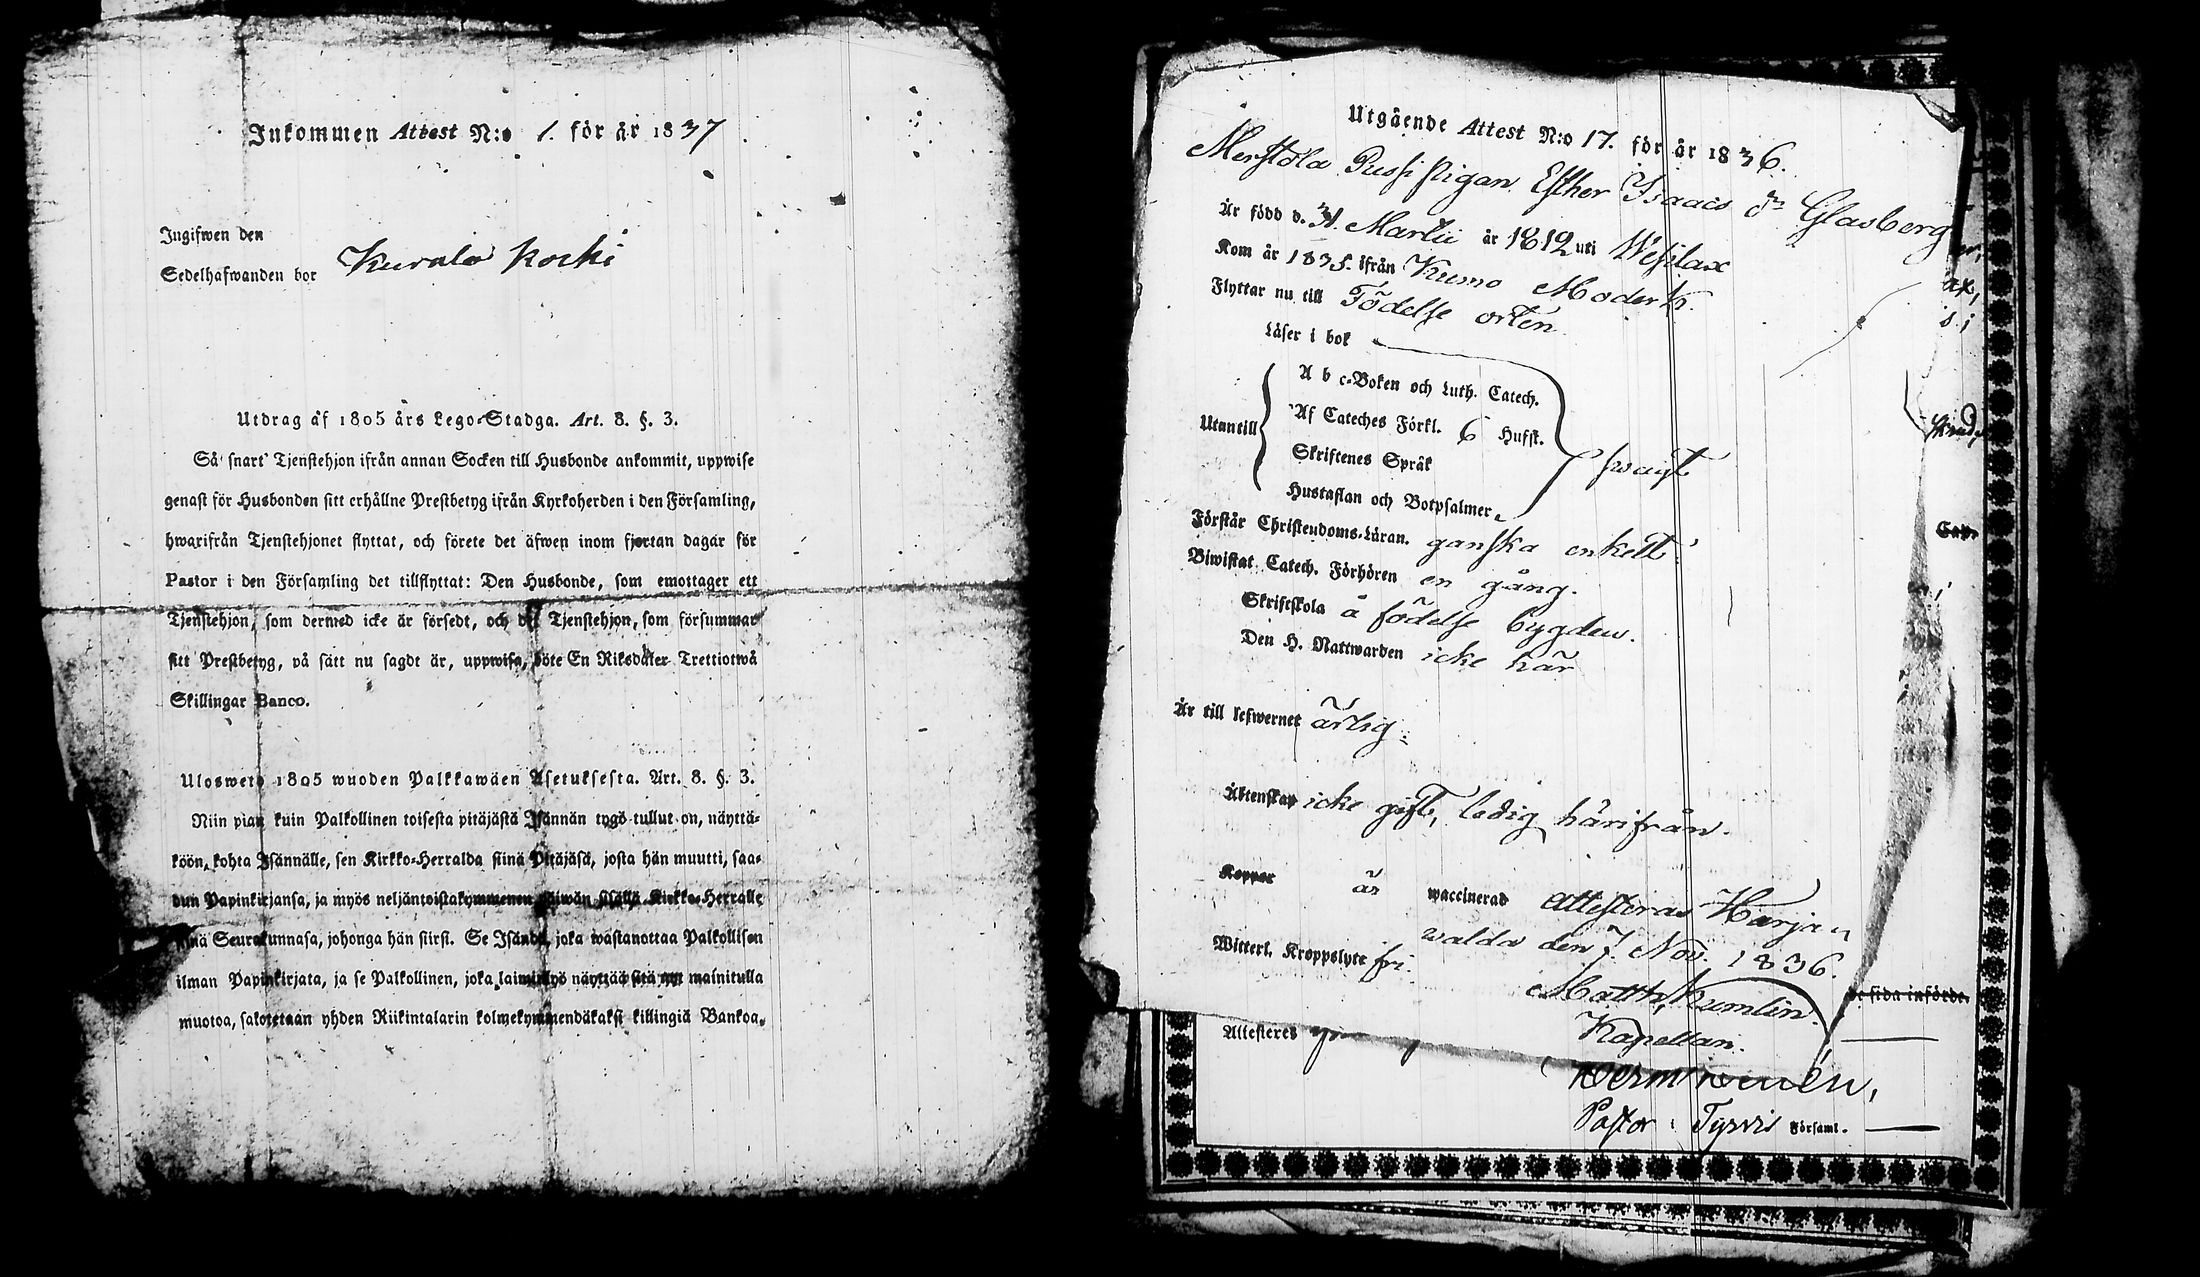 Inkommen Attest N:o 1. för år 1837
Ingifwen den
Sedelhafwanden bor Kurala Kocki
Utdrag af 1805 års Lego-Stadga. Art. 8. §. 3.
Så snart Tjenstehjon ifrån annan Socken till Husbonde ankommit, uppwise
genast för Husbonden sitt erhållne Prestbetyg ifrån Kyrkoherden i den Församling,
hwarifrån Tjenstehjonet flyttat, och förete det äfwen inom fjortan dagar för
Pastor i den Församling det tillflyttat: Den Husbonde, som emottager ett
Tjenstehjon, som dermed icke är försedt, och det Tjenstehjon, som försummar
sitt Prestbetyg, på sätt nu sagdt är, uppwisa, böte En Riksdaler Trettiotwå
Skillingar Banco.
Ulosweto 1805 wuoden Palkkawäen Asetuksesta. Art. 8. §. 3.
Niin pian kuin Palkollinen toisesta pitäjästä Isännän tygö tullut on, näyttä-
köön kohta Isännälle, sen Kirkko-Herralda siinä Pitäjäsä, josta hän muutti, saa-
dun Papinkirjansa, ja myös neljäntoistakymmenen päiwän sisällä Kirkko-Herralle
siinä Seurakunnasa, johonga hän siirsi. Se Isändä, joka wastanottaa Palkollisen
ilman Papinkirjata, ja se Palkollinen, joka laiminlyö näyttää sitä nyt mainitulla
muotoa, sakotetaan yhden Riikintalarin kolmekymmendäkaksi killingiä Bankoa.
Utgående Attest N:o 17. för år 1836.
Merstola Pussi pigan Esther Isaacs dr Glasberg
Är född d. 31. Martii år 1812 uti Wesilax
Kom år 1835. ifrån Kumo Moderk.
Flyttar nu till Födelse orten
Läser i bok
A b c-Boken och Luth. Catech.
Utantill Af Cateches Förkl. 6 Hufst.
Skriftenes Språk
swagt
Hustaflan och Botpsalmer
Förstår Christendoms-Läran. ganska enkelt
Biwistat Catech. Förhören en gång.
Skriftskola å födelse bygden.
Den H. Nattwarden icke här
Är till lefwernet ärlig
Äktenskap icke gift, ledig härifrån.
Koppor är waccinerad Attesteras Harjan
walda den 7. Nov. 1836.
Witterl. Kroppslyte fri.
Matth. Kumlin.
Kapellan.
de sida införde.
Attesteres
Pastor i Tyrvis Församl.